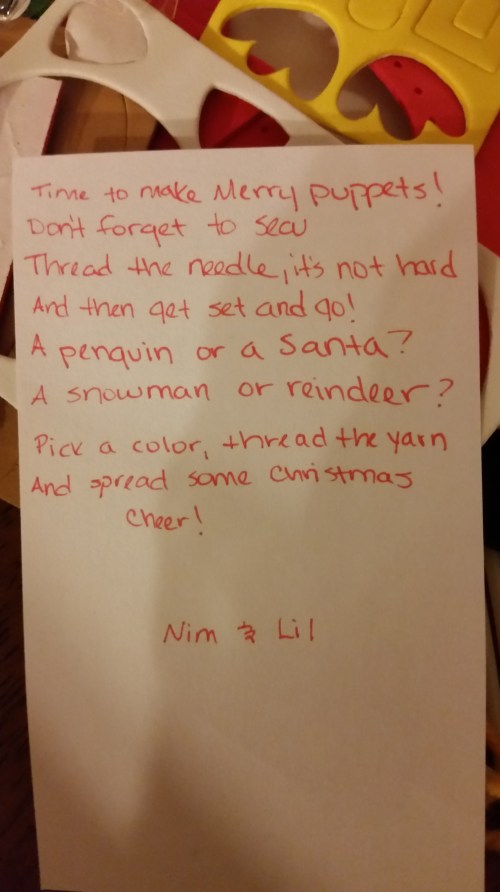 Time to make Merry puppets!
Don't forget to sew
Thread the needle, it's not hard
And then get set and go!
A penguin or a Santa?
A snowman or reindeer?
Pick a color, thread the yarn
And spread some Christmas
cheer!
Nim & Lil